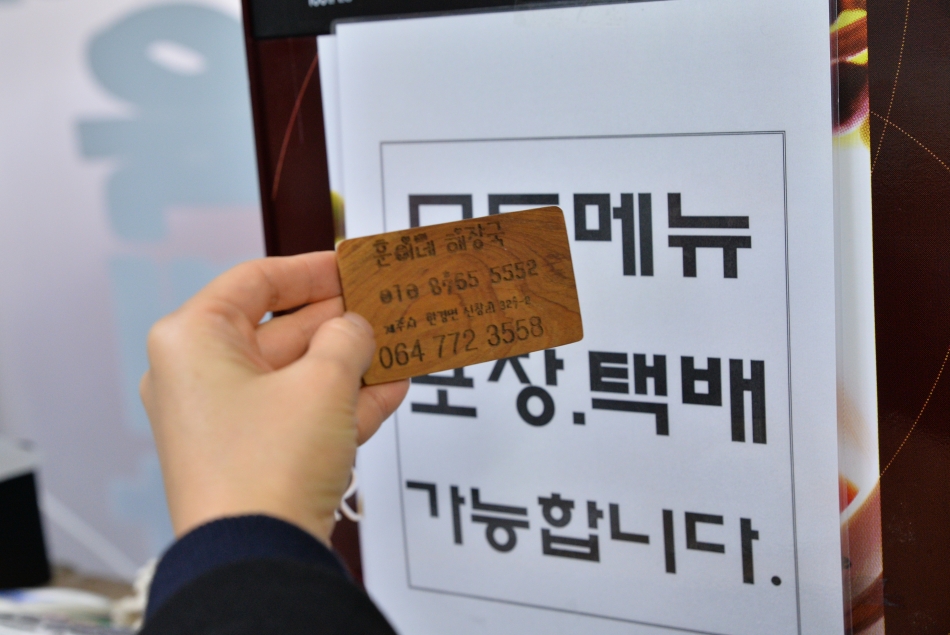 훈이네 해장국
010 8765 5552
제주시 한경면 신창리 329-2
064 772 3558
모든메뉴
포장.택배
가능합니다.